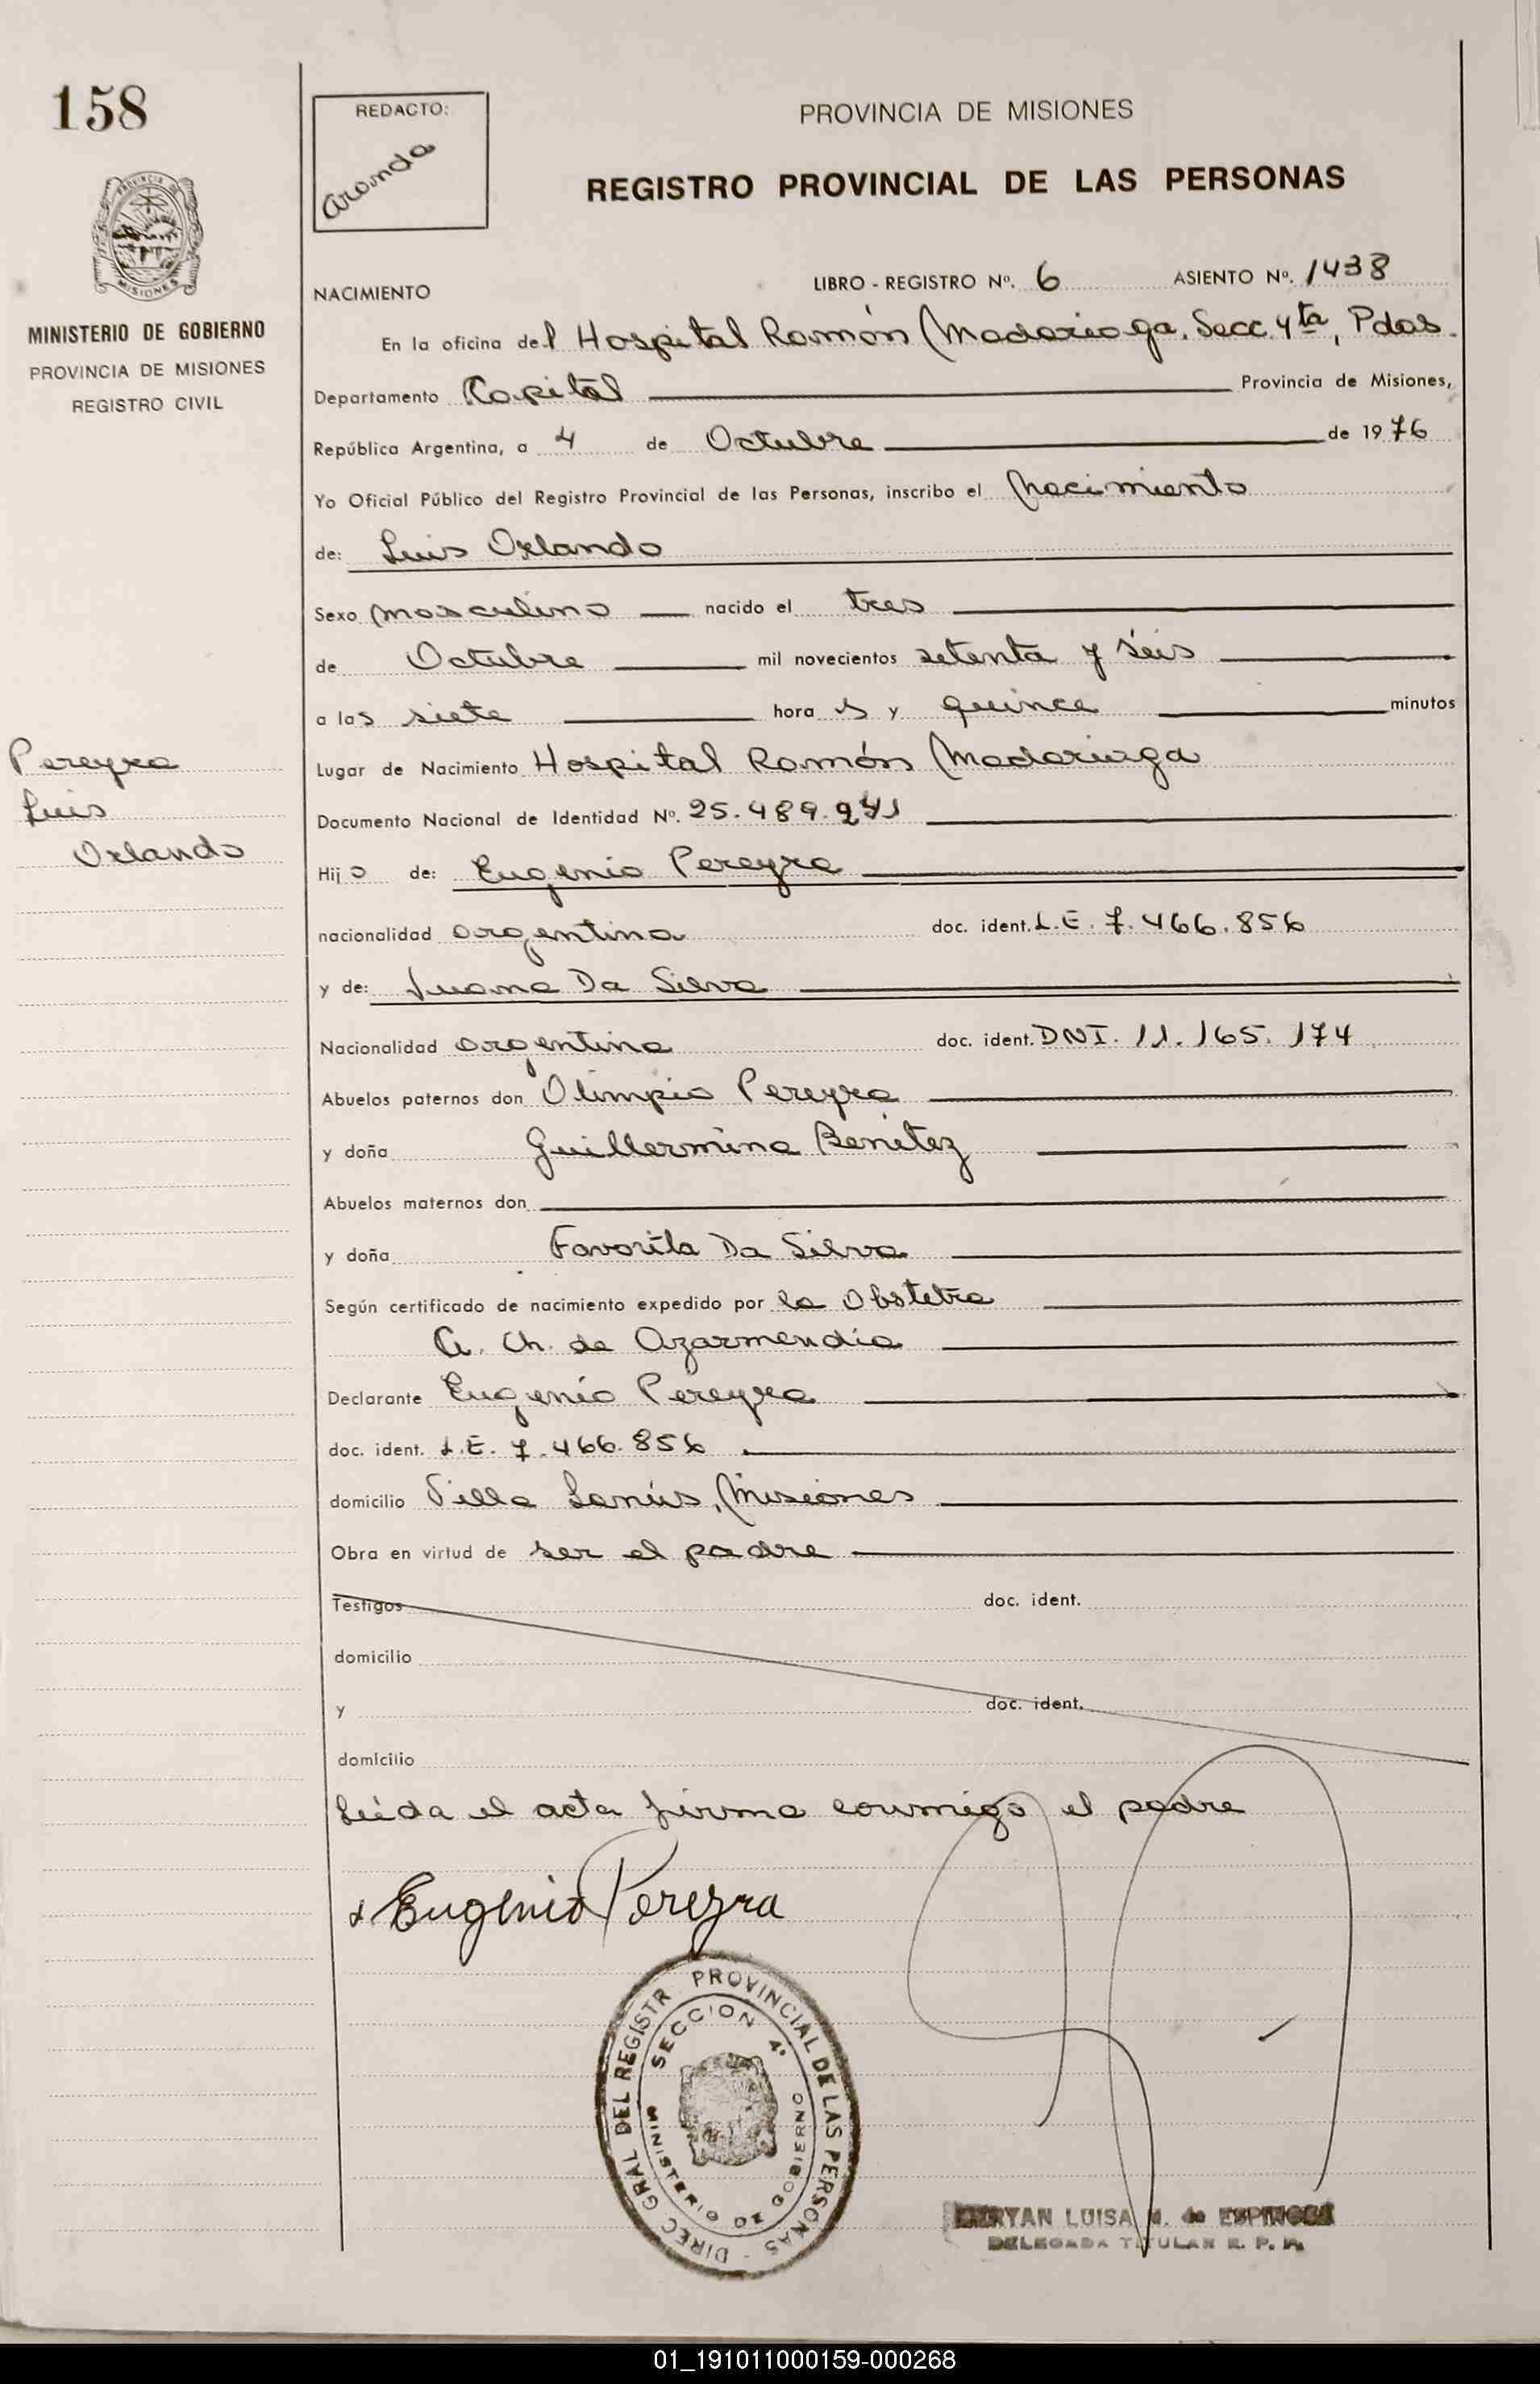 158
REDACTO:
Aranda
PROVINCIA DE MISIONES
REGISTRO PROVINCIAL DE LAS PERSONAS
MISIONES
MINISTERIO DE GOBIERNO
PROVINCIA DE MISIONES
REGISTRO CIVIL
NACIMIENTO LIBRO - REGISTRO Nº. 6 ASIENTO Nº. 1438
En la oficina del Hospital Ramón Madariaga, Secc. 4ta, Pdas.
Departamento Capital Provincia de Misiones,
República Argentina, a 4 de Octubre de 1976
Yo Oficial Público del Registro Provincial de las Personas, inscribo el Nacimiento
de: Luis Orlando
Sexo masculino nacido el tres
de Octubre mil novecientos setenta y séis
a las siete horas y quince minutos
Pereyra
Luis
Orlando
Lugar de Nacimiento Hospital Ramón Madariaga
Documento Nacional de Identidad Nº. 25.489.
Hijo de: Eugenio Pereyra
nacionalidad argentina doc. ident. L.E. 7.466.856
y de: Juana Da Silva
Nacionalidad argentina doc. ident. DNI. 11.165.174
Abuelos paternos don Olimpio Pereyra
y doña Guillermina Benítez
Abuelos maternos don
y doña Favorita Da Silva
Según certificado de nacimiento expedido por la Obstetra
A. Ch. de Azarmendia
Declarante Eugenio Pereyra
doc. ident. L.E. 7.466.856
domicilio Villa Lanús, Misiones
Obra en virtud de ser el padre
Testigos doc. ident.
domicilio
y doc. ident.
domicilio
Leída el acta firma conmigo el padre
Eugenio Pereyra
DIREC GRAL DEL REGISTR PROVINCIAL DE LAS PERSONAS
SECCION 4º
MINISTERIO DE GOBIERNO
LUISA M. de ESPINOSA
DELEGADA TITULAR R. P. P.
01_191011000159-000268